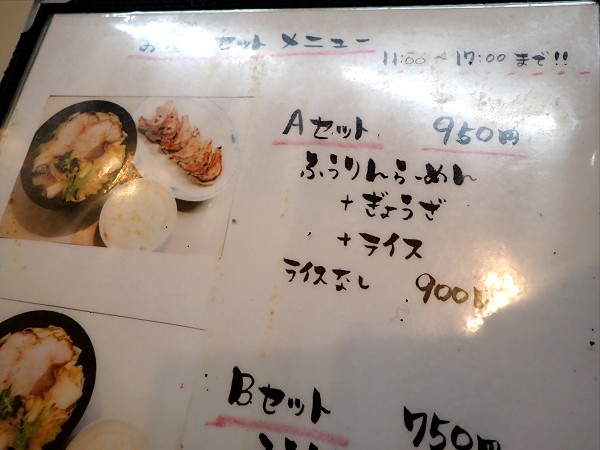 お セットメニュー
11:00～17:00まで!!
Aセット 950円
ふうりんらーめん
+ぎょうざ
+ライス
ライスなし 900円
Bセット 750円